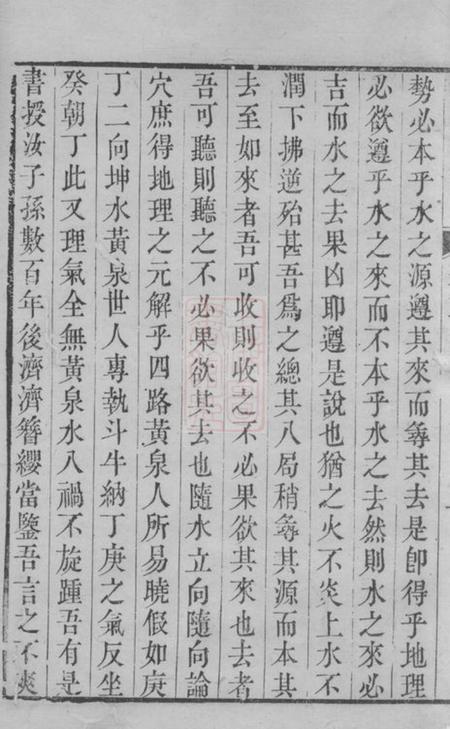 勢必本乎水之源遵其來而尋其去是卽得乎地理
必欲遵乎水之來而不本乎水之去然則水之來必
吉而水之去果凶耶遵是說也猶之火不炎上水不
潤下拂逆殆甚吾爲之總其八局稍尋其源而本其
去至如來者吾可收則收之不必果欲其來也去者
吾可聽則聽之不必果欲其去也隨水立向隨向論
穴庶得地理之元解乎四路黃泉人所易曉假如庚
丁二向坤水黃泉世人專執斗牛納丁庚之氣反坐
癸朝丁此又理氣全無黃泉水入禍不旋踵吾有是
書授汝子孫數百年後濟濟簪纓當鑒吾言之不爽